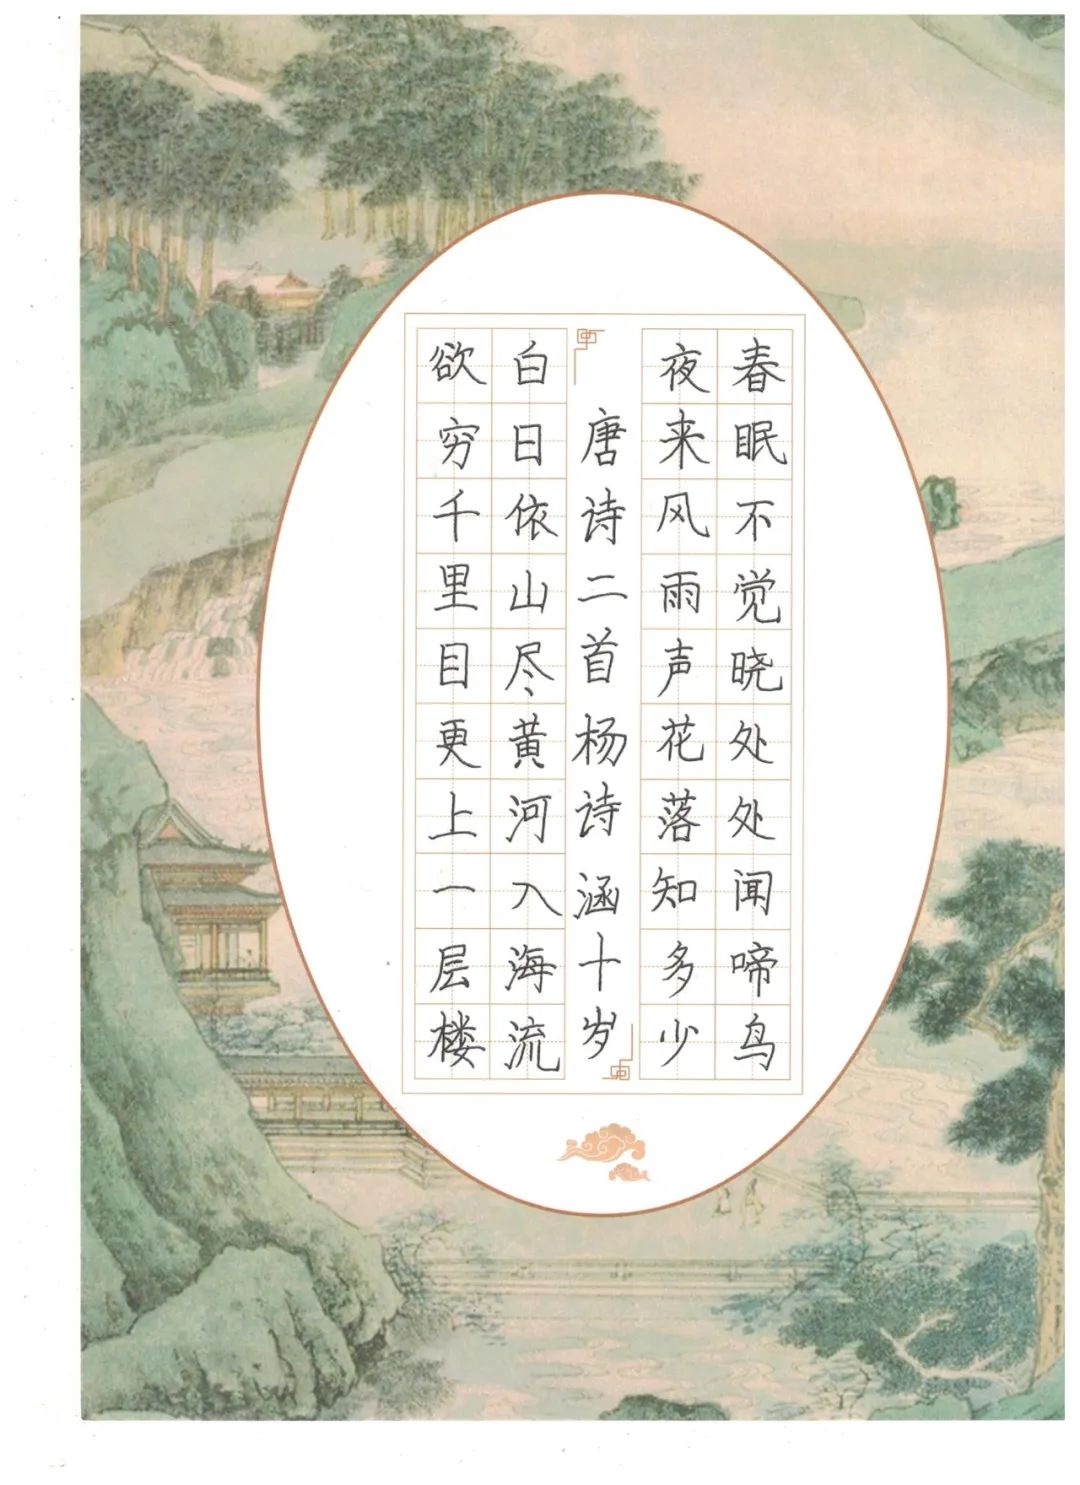 春眠不觉晓处处闻啼鸟
夜来风雨声花落知多少
唐诗二首杨诗涵十岁
白日依山尽黄河入海流
欲穷千里目更上一层楼